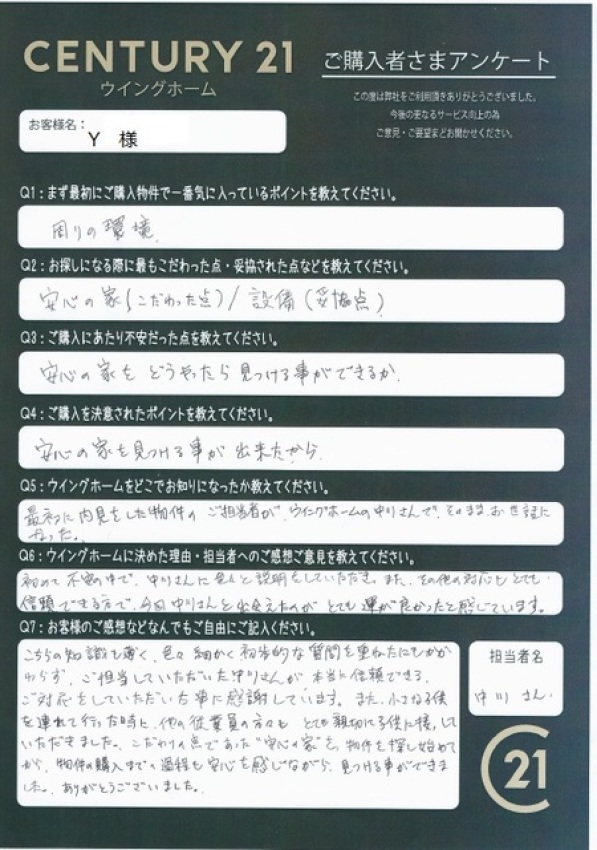 CENTURY 21
ウイングホーム
ご購入者さまアンケート
この度は弊社をご利用頂きありがとうございました。
今後の更なるサービス向上の為
ご意見・ご要望などお聞かせください。
お客様名：
Y 様
Q1：まず最初にご購入物件で一番気に入っているポイントを教えてください。
周りの環境
Q2：お探しになる際に最もこだわった点・妥協された点などを教えてください。
安心の家(こだわった点)/ 設備(妥協点)
Q3：ご購入にあたり不安だった点を教えてください。
安心の家をどうやったら見つける事ができるか.
Q4：ご購入を決意されたポイントを教えてください。
安心の家を見つける事が出来たから.
Q5：ウイングホームをどこでお知りになったか教えてください。
最初に内見をした物件のご担当者が、ウイングホームの中川さんで、そのままお世話に
なった。
Q6：ウイングホームに決めた理由・担当者へのご感想ご意見を教えてください。
初めて不安の中で、中川さんに色々と説明をしていただき、また、その他の対応もとても
信頼できる方で、今回中川さんと出会えたのがとても運が良かったと感じています。
Q7：お客様のご感想などなんでもご自由にご記入ください。
こちらの知識も薄く、色々細かく初歩的な質問を重ねたにもかか
わらず、ご担当していただいた中川さんが本当に信頼できる、
ご対応をしていただいた事に感謝しています。また、小さな子供
を連れて行った時に、他の従業員の方々も とても親切に子供に接して
いただきました。こだわりの点であった"安心の家"を、物件を探し始めて
から、物件の購入までの過程も安心を感じながら、見つける事ができま
した。ありがとうございました。
担当者名
中川 さん
C21